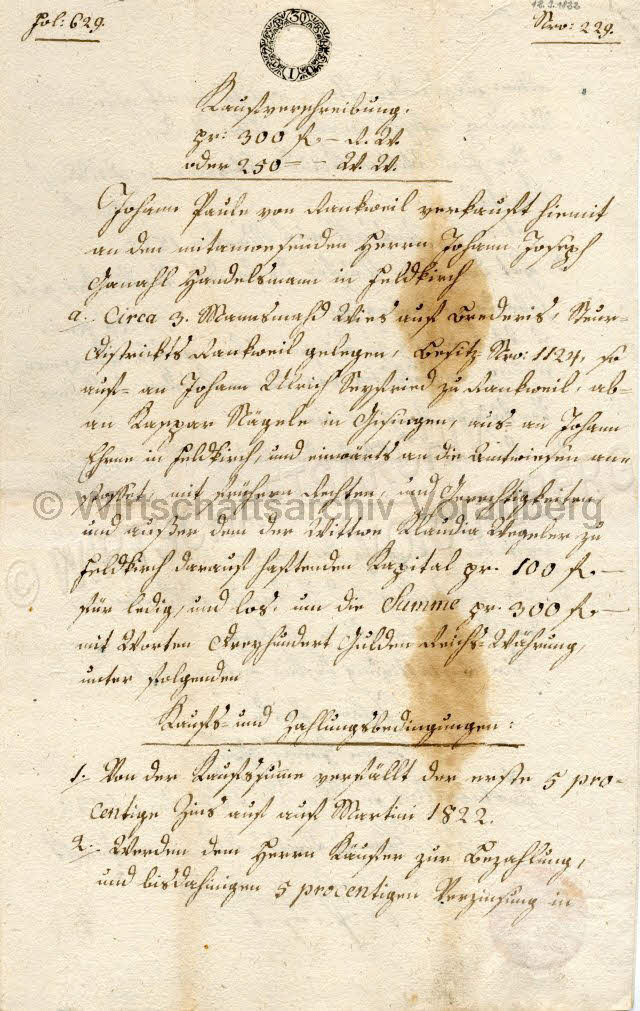 18.3.1822
Fol: 629.
Nro: 229.
30
Kaufsverschreibung.
pr: 300 f. – R. W.
oder 250 – – W. W.
Johann Paule von Rankweil verkauft hiemit
an den mitanwesenden Herrn Johann Joseph
Ganahl Handelsmann in Feldkirch
a. Circa 3. Mannsmahd Wies auf Brederis, Steur-
Districkts Rankweil gelegen, Besitz Nro: 1124, so
auf- an Johann Ulrich Seyfried zu Rankweil, ab-
an Kaspar Nägele in Gisingen, aus- an Johann
in Feldkirch, und einwärts an die Amtwiesen an-
stosset, mit frühern Rechten, und Gerechtigkeiten,
und außer dem der Wittwe Klaudia Wegeler zu
Feldkirch darauf haftenden Kapital pr. 100 f. –
für ledig, und los. um die Summe pr. 300 f. –
mit Worten Dreyhundert Gulden Reichs-Währung,
unter folgenden
Kaufs- und Zahlungsbedingungen:
1. Von der Kaufssume verfällt der erste 5 pro-
centige Zins auf auf Martini 1822.
2. Werden dem Herrn Käufer zur Bezahlung,
und bisdahinigen 5 procentigen Verzinsung in
© Wirtschaftsarchiv Vorarlberg